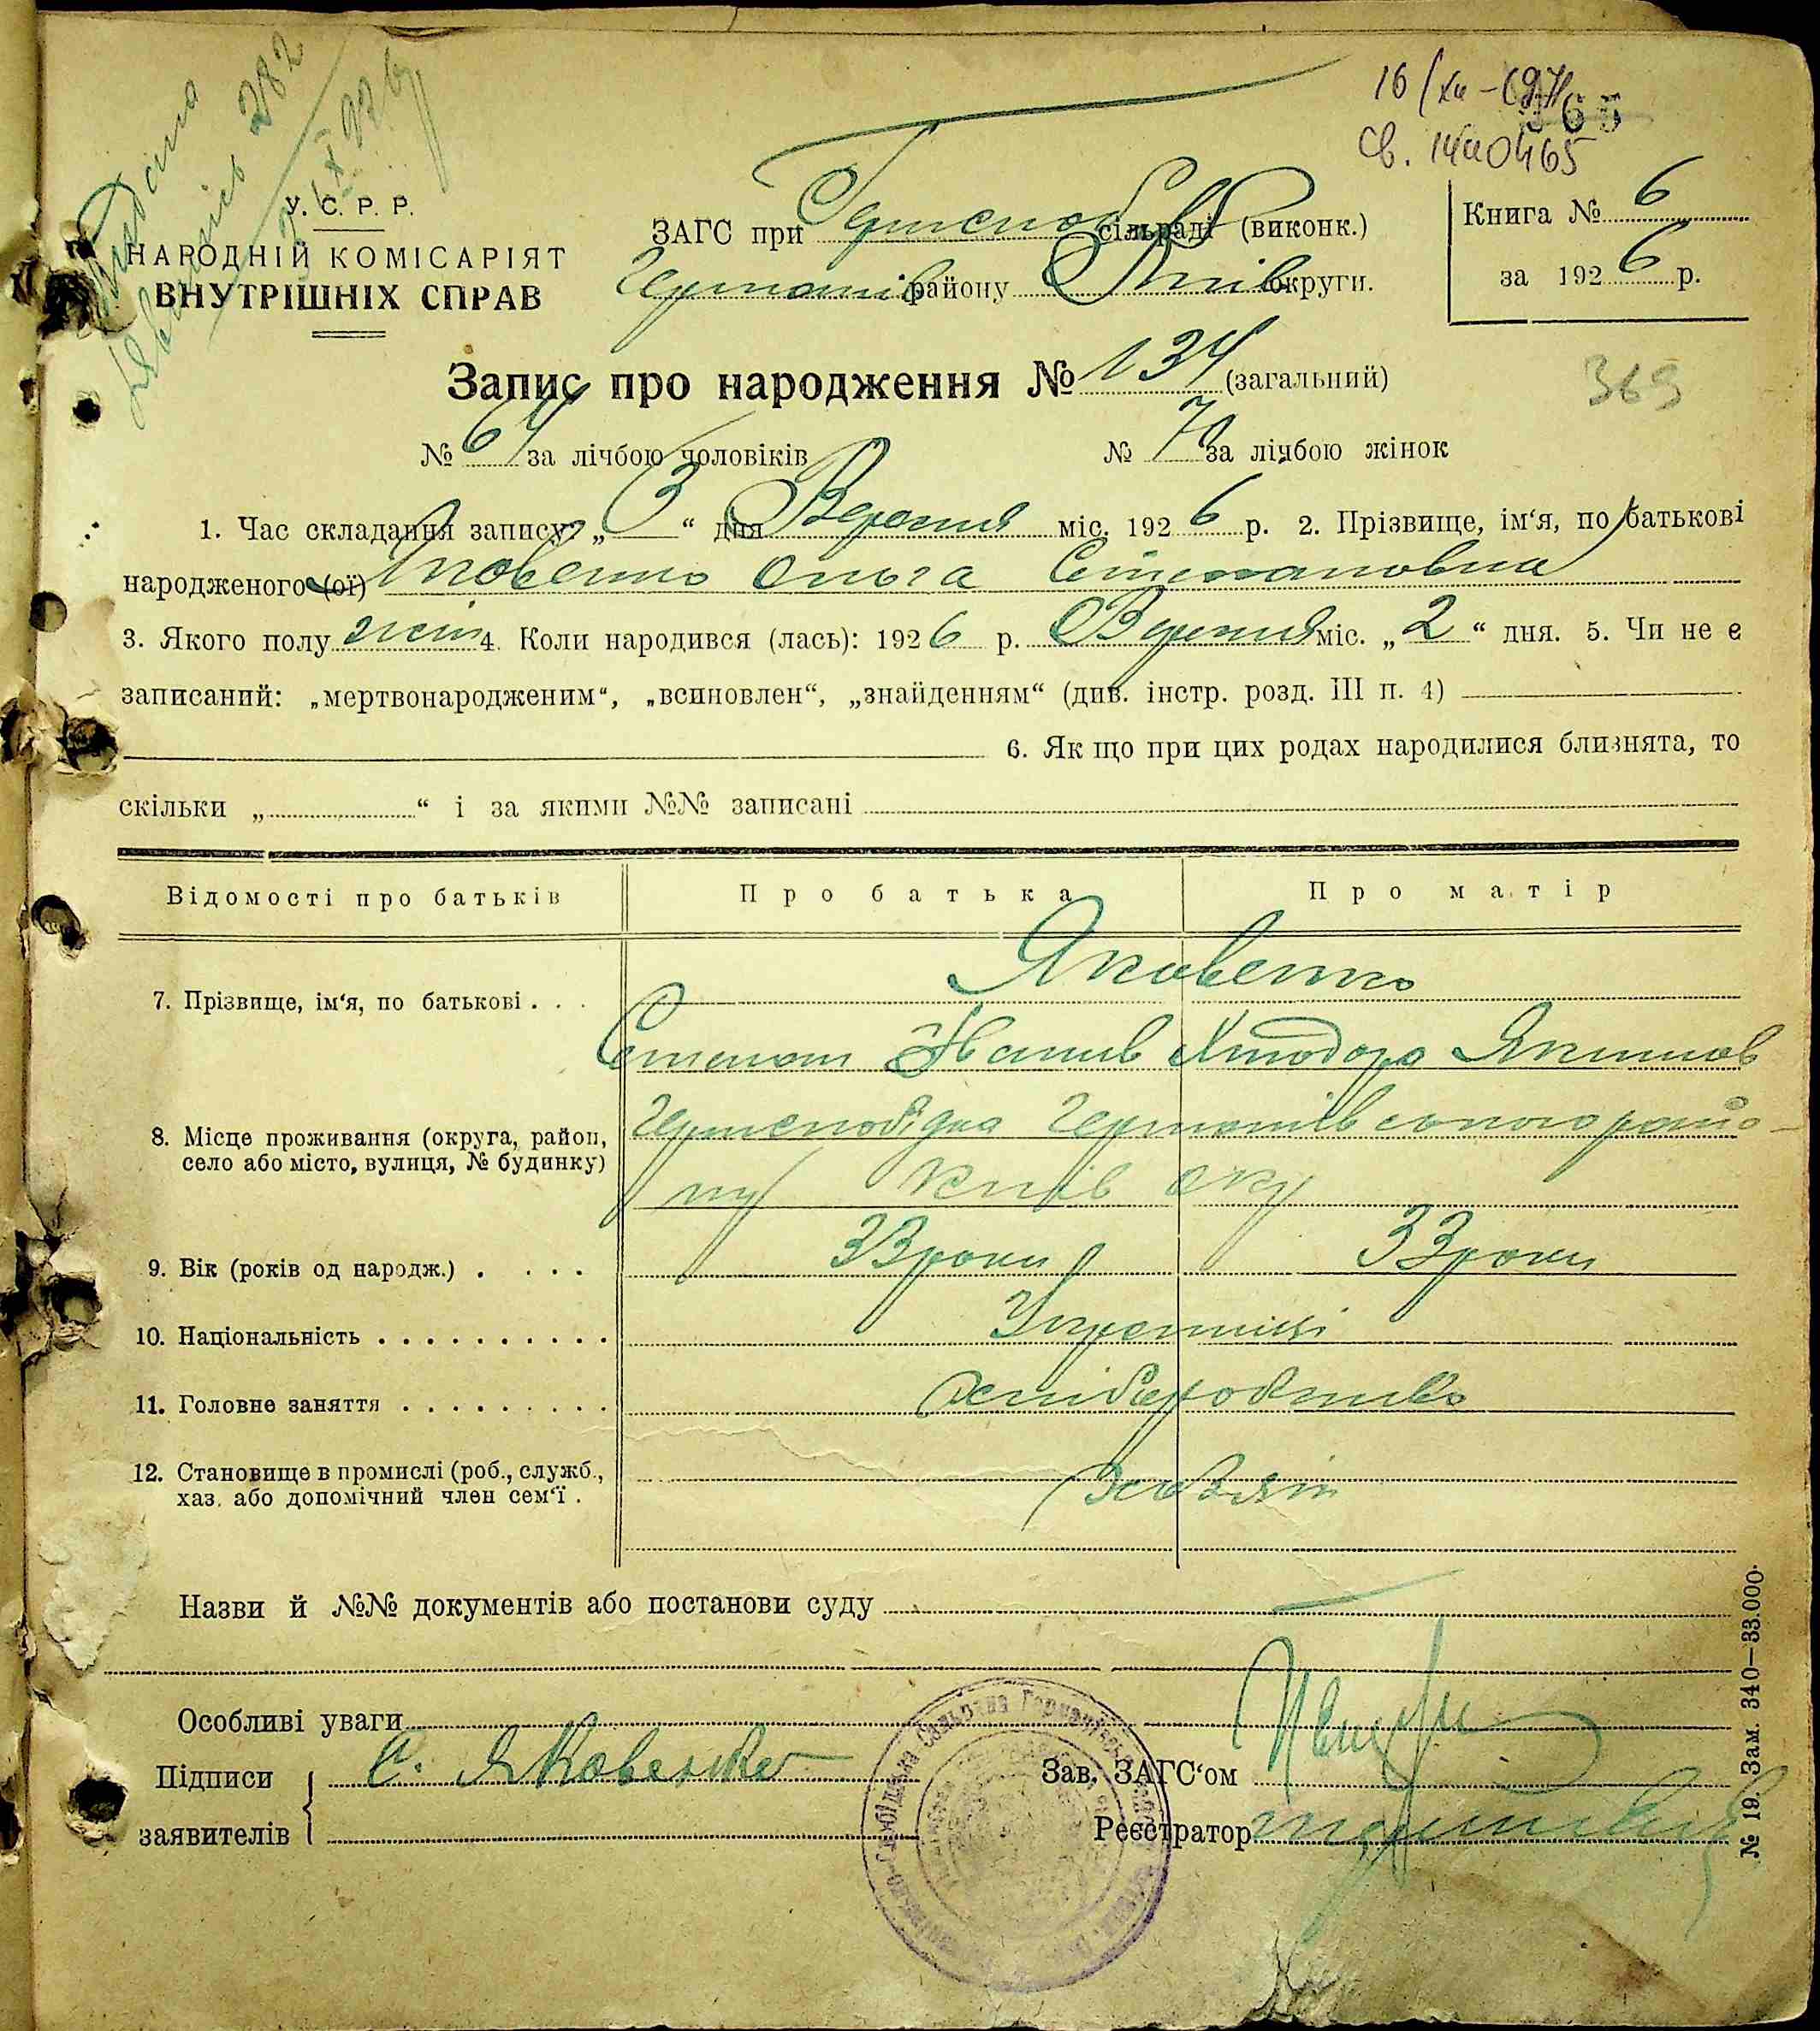 Видана
282
16/XII-69
365
св.
У. С. Р. Р.
НАРОДНІЙ КОМІСАРІЯТ
ВНУТРІШНІХ СПРАВ
ЗАГС при сільраді (виконк.)
району Київ округи.
Книга № 6
за 1926 р.
Запис про народження № 134 (загальний)
369
№ 64 за лічбою чоловіків № 70 за лічбою жінок
1. Час складання запису: „ 3 “ дня Вересня міс. 1926 р. 2. Прізвище, ім‘я, по батькові
народженого (ої) Яковенко Ольга Степановна
3. Якого полу жін 4. Коли народився (лась): 1926 р. Вересня міс. „ 2 “ дня. 5. Чи не є
записаний: „мертвонародженим“, „всиновлен“, „знайденням“ (див. інстр. розд. III п. 4)
6. Як що при цих родах народилися близнята, то
скільки „ “ і за якими №№ записані
Відомості про батьків Про батька Про матір
Яковенко
7. Прізвище, ім‘я, по батькові . . .
Степан Іванів Хтодора Якимов
8. Місце проживання (округа, район,
село або місто, вулиця, № будинку)
ну Київ окр
9. Вік (років од народж.) . . . . 33 роки 33 роки
10. Національність . . . . . . . . . . Українці
11. Головне заняття . . . . . . . . . хліборобство
12. Становище в промислі (роб., служб.,
хаз. або допомічний член сем‘ї .
Хозяїн
Назви й №№ документів або постанови суду
Особливі уваги
Підписи С. Яковенко Зав. ЗАГС‘ом
заявителів Реєстратор
№ 19. Зам. 340—33.000.